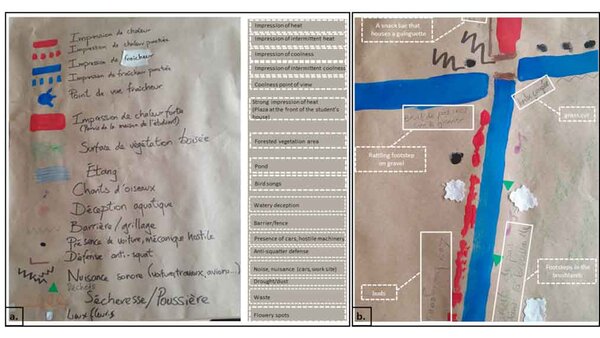 Impression de chaleur
Impression de chaleur ponctuée
Impression de fraîcheur
Impression de fraîcheur ponctuée
Point de vue fraîcheur
Impression de chaleur forte
Surface de végétation boisée
Étang
Chants d'oiseaux
Déception aquatique
Barrière/grillage
Présence de voiture, mécanique hostile
Défense anti-squat
Nuisance sonore (voiture, travaux, avions...)
Déchets
Sécheresse/Poussière
Lieux fleuris
a.
Impression of heat
Impression of intermittent heat
Impression of coolness
Impression of intermittent coolness
Coolness point of view
Strong impression of heat
(Plaza at the front of the student's
house)
Forested vegetation area
Pond
Bird songs
Watery deception
Barrier/fence
Presence of cars, hostile machinery
Anti-squatter defense
Noise, nuisance (cars, work site)
Drought/dust
Waste
Flowery spots
A snack bar that
houses a guinguette
grass cut
Rattling footstep
on gravel
buds
Footsteps in the
brushlands
b.